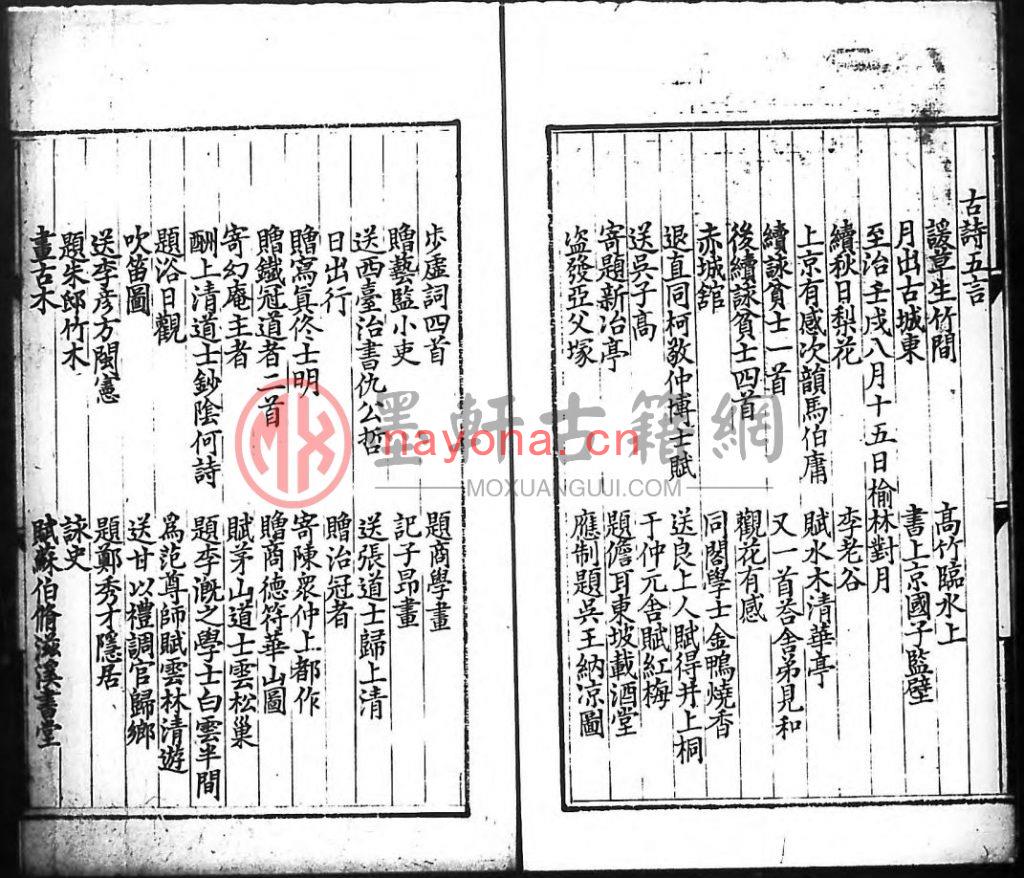 古詩五言
諼草生竹間　高竹臨水上
月出古城東　書上京國子監壁
至治壬戌八月十五日榆林對月
續秋日梨花　李老谷
上京有感次韻馬伯庸　賦水木清華亭
續詠貧士一首　又一首荅舍弟見和
後續詠貧士四首　觀花有感
赤城舘　同閣學士金鴨燒香
退直同柯敬仲博士賦　送良上人賦得井上桐
送吳子高　于仲元舍賦紅梅
寄題新冶亭　題儋耳東坡載酒堂
盗發亞父塚　應制題吳王納凉圖
步虛詞四首　題商學畫
贈藝監小吏　記子昂畫
送西臺治書仇公哲　送張道士歸上清
日出行　贈治冠者
贈寫眞佟士明　寄陳衆仲上都作
贈鐵冠道者二首　贈商德符華山圖
寄幻庵主者　賦茅山道士雲松巢
酬上清道士鈔陰何詩　題李溉之學士白雲半間
題浴日觀　爲范尊師賦雲林清遊
吹笛圖　送甘以禮調官歸鄉
送李彥方閩憲　題鄭秀才隱居
題朱邸竹木　詠史
畫古木　賦蘇伯脩滋溪書堂
墨軒古籍網
nayona.cn
MOXUANGUJI.COM